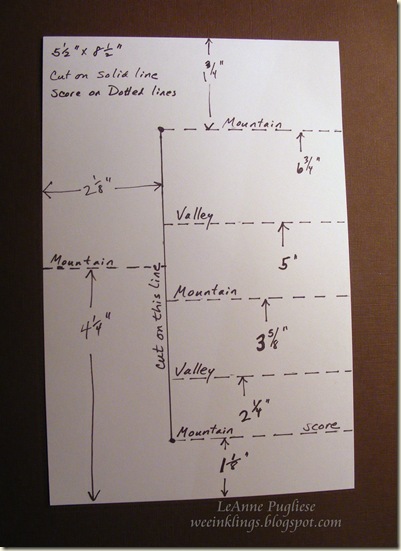 5 1/2" x 8 1/2"
Cut on Solid line
Score on Dotted lines
1 3/4"
Mountain
6 3/4"
2 1/8"
Valley
5"
Mountain
4 1/4"
cut on this line
Mountain
3 5/8"
Valley
2 1/4"
Mountain score
1 1/8"
LeAnne Pugliese
weeinklings.blogspot.com